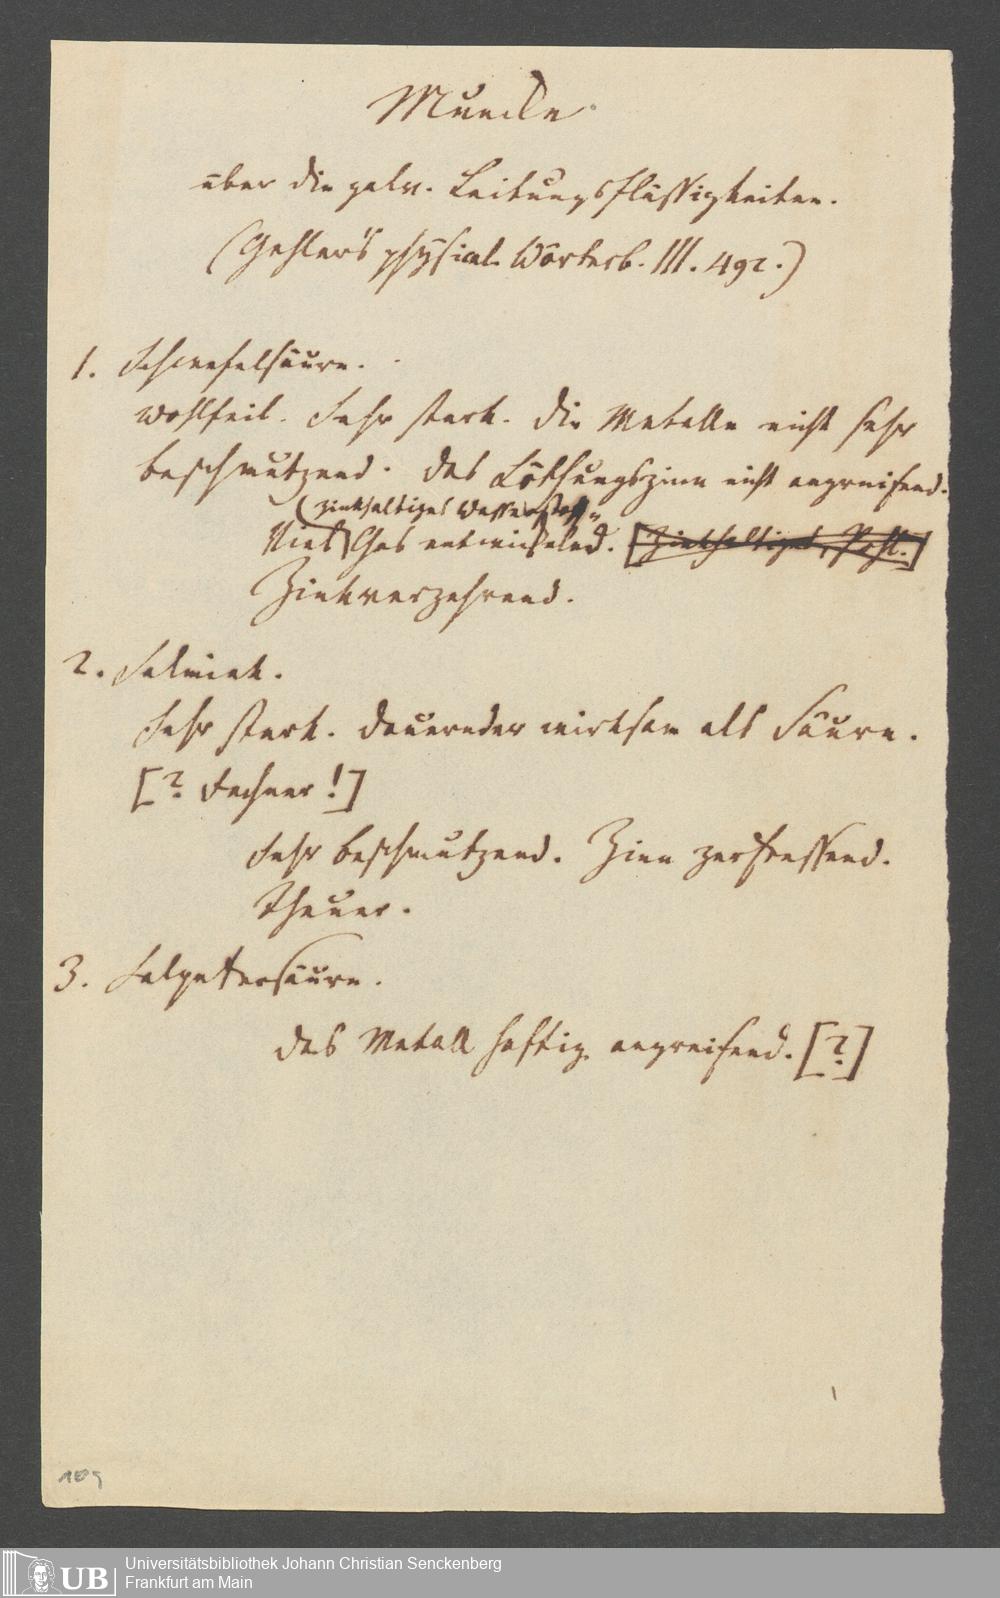 Muncke
über die galv. Leitungsflüssigkeiten.
(Gehler's physical. Wörterb. III. 492.)
1. Schwefelsäure.
Wohlfeil. Sehr stark. Die Metalle nicht sehr
beschmutzend. Das Löthungszinn nicht angreifend.
(zinkhaltiges Wasserstoff-
Viel Gas entwickelnd. [Zinkhaltiges,
Zinkverzehrend.
2. Salmiak.
Sehr stark. Dauernder wirksam als Säure.
[? Fechner!]
Sehr beschmutzend. Zinn zerfressend.
Theuer.
3. Salpetersäure.
Das Metall heftig angreifend. [?]
109
UB
Universitätsbibliothek Johann Christian Senckenberg
Frankfurt am Main